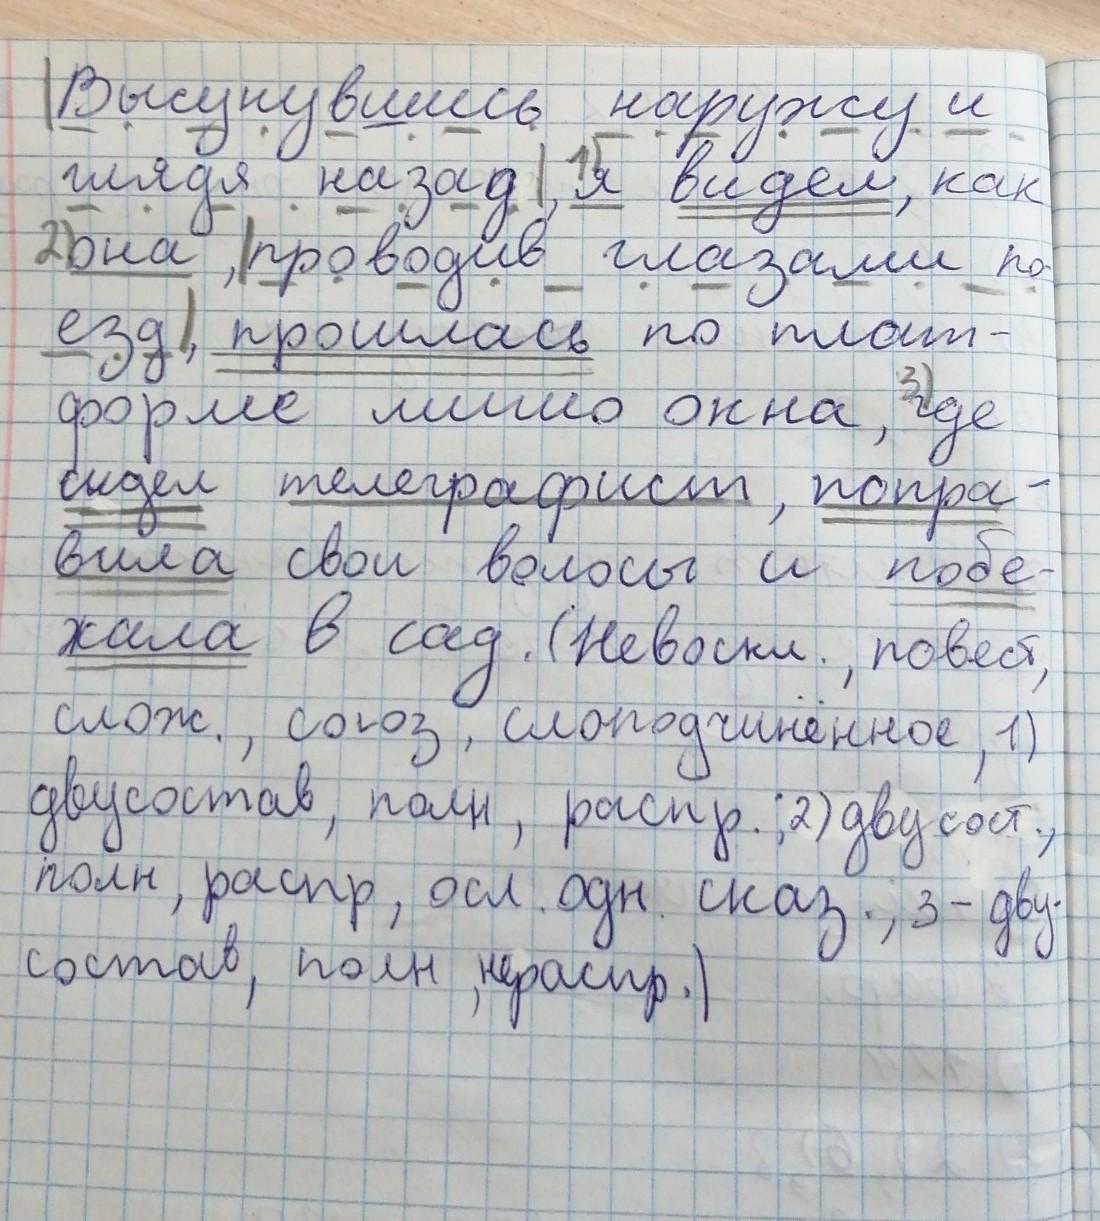 |Высунувшись наружу и
глядя назад|, 1) я видел, как
2) она, |проводив глазами по-
езд|, прошлась по плат-
форме мимо окна, 3) где
сидел телеграфист, попра-
вила свои волосы и побе-
жала в сад. (Невоскл., повест,
слож., союз, слоподчинённое, 1)
двусостав, полн, распр.; 2) двусост.,
полн, распр, осл. одн. сказ., 3 - дву-
состав, полн, нераспр.)